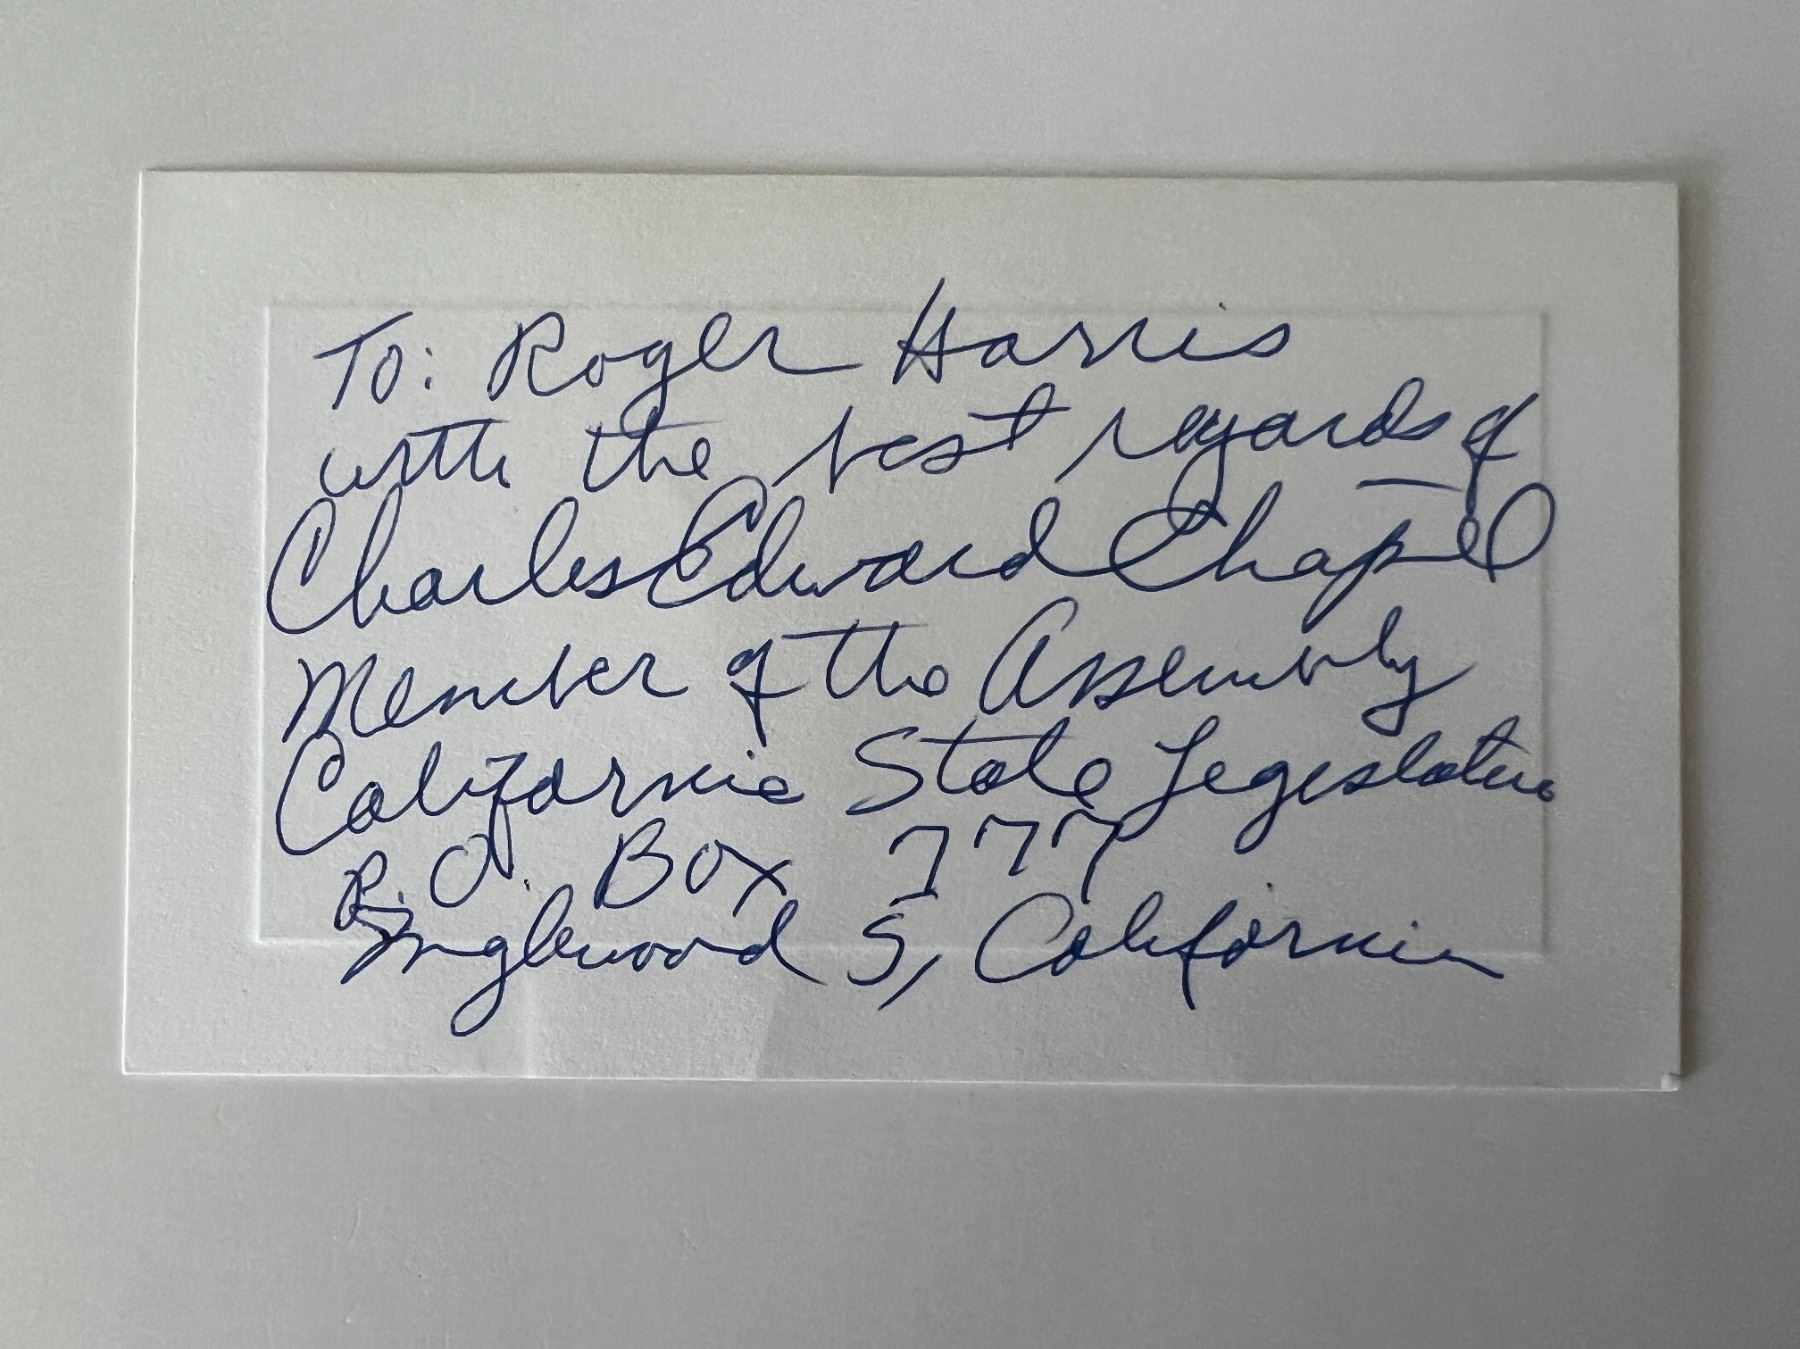 To: Roger Harris
with the best regards of
Charles Edward Chapel
Member of the Assembly
California State Legislature
P.O. Box 777
Inglewood 5, California